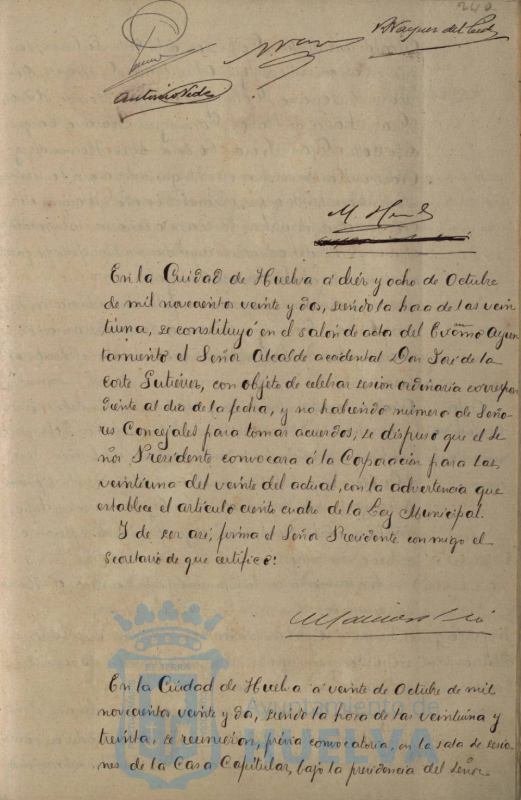 240
V. Vazquez del Cid
Antonio Vides
En la Ciudad de Huelva á diéz y ocho de Octubre
de mil novecientos veinte y dos, siendo la hora de las vein
tiuna, se constituyó en el salón de acta del Excmo Ayun
tamiento el Señor Alcalde accidental Don José de la
Corte Gutierrez, con objeto de celebrar sesion ordinaria correspon
diente al dia de la fecha, y no habiendo número de Seño-
res Concejales para tomar acuerdos, se dispuso que el Se
ñor Presidente convocara á la Coporación para las
veintiuna del veinte del actual, con la advertencia que
establece el articulo ciento cuatro de la Ley Municipal.
Y de ser asi, firma el Señor Presidente conmigo el
Secretario de que certifico:
En la Ciudad de Huelva á veinte de Octubre de mil
novecientos veinte y dos, siendo la hora de las veintiuna y
treinta, se reunieron, prévia convocatoria, en la sala de sesio-
nes de la Casa Capitular, bajo la presidencia del Señor
Ayuntamiento de
HUELVA